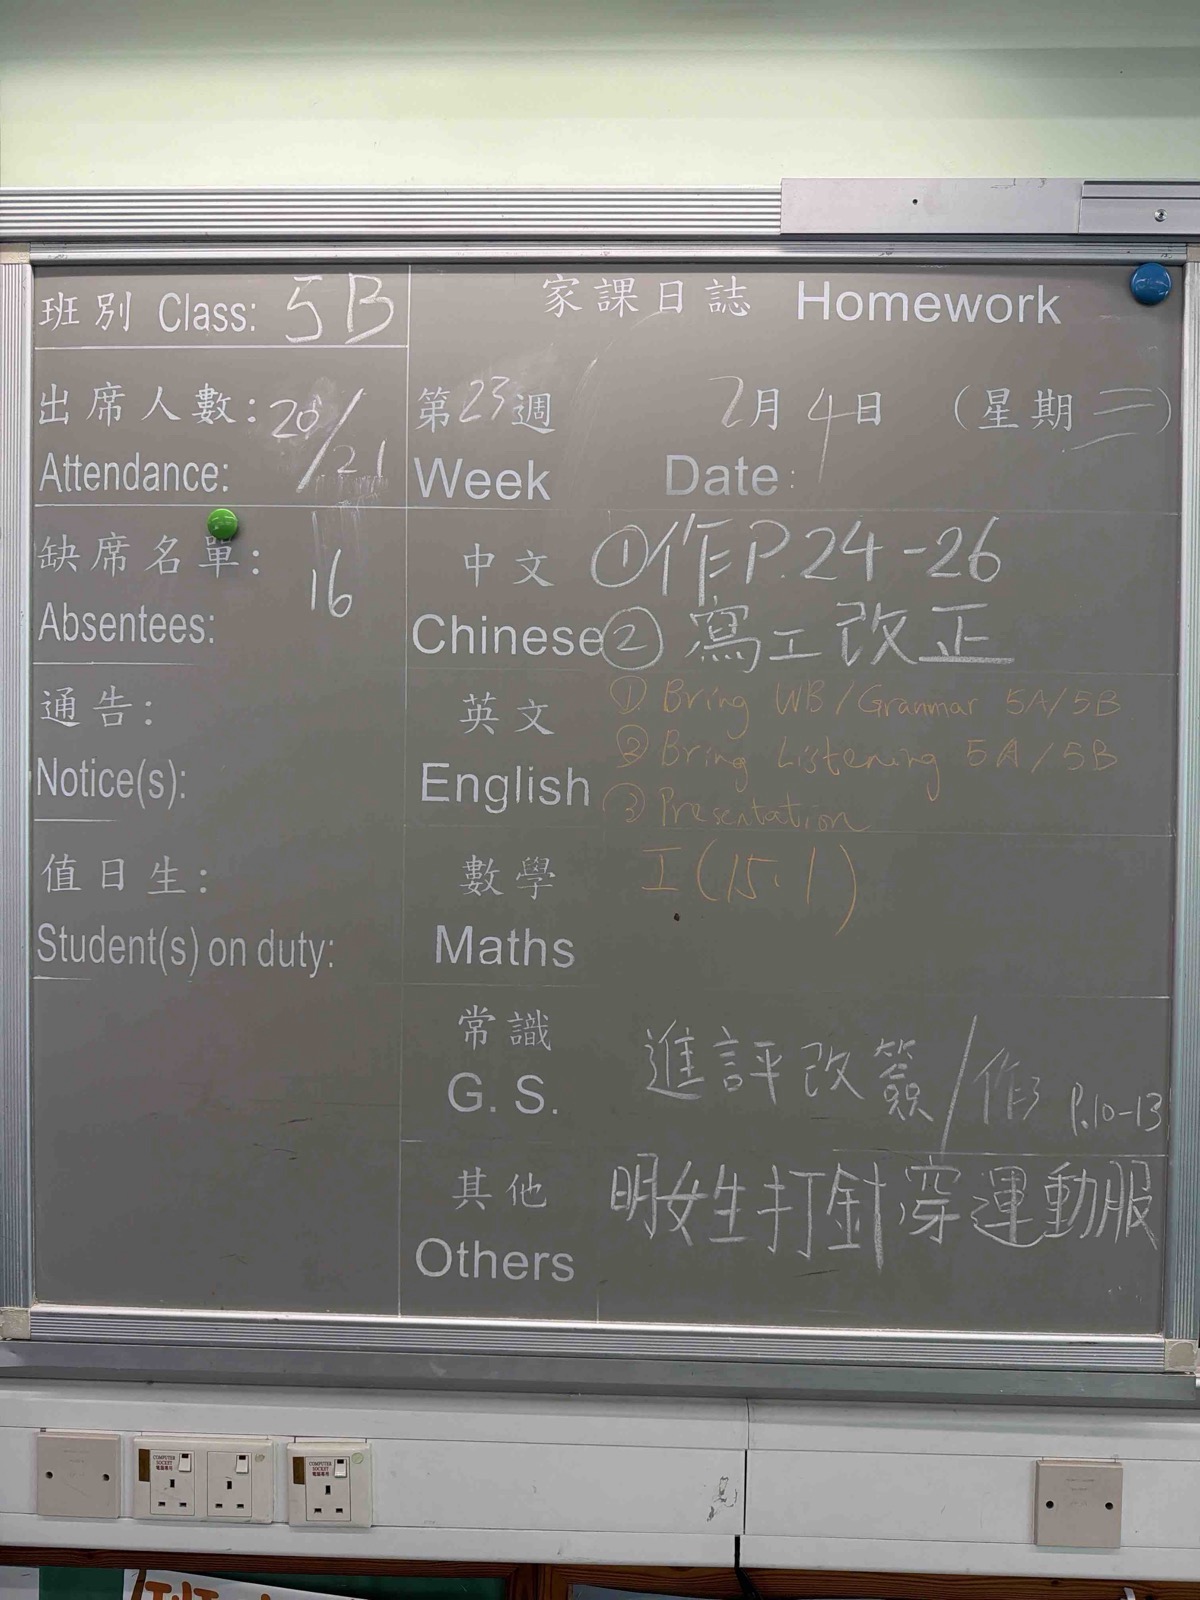 班別 Class: 5B
出席人數: 20/21
Attendance:
缺席名單: 16
Absentees:
通告:
Notice(s):
值日生:
Student(s) on duty:
家課日誌 Homework
第23週 2月4日 (星期二)
Week Date:
中文 ①作P.24-26
Chinese ②寫工改正
英文 ① Bring WB/Granmar 5A/5B
English ② Bring Listening 5A/5B
③ Presentation
數學 I(15.1)
Maths
常識 進評改簽/作3 P.10-13
G. S.
其他 明女生打針穿運動服
Others
COMPUTER SOCKET
電腦專用
COMPUTER SOCKET
電腦專用